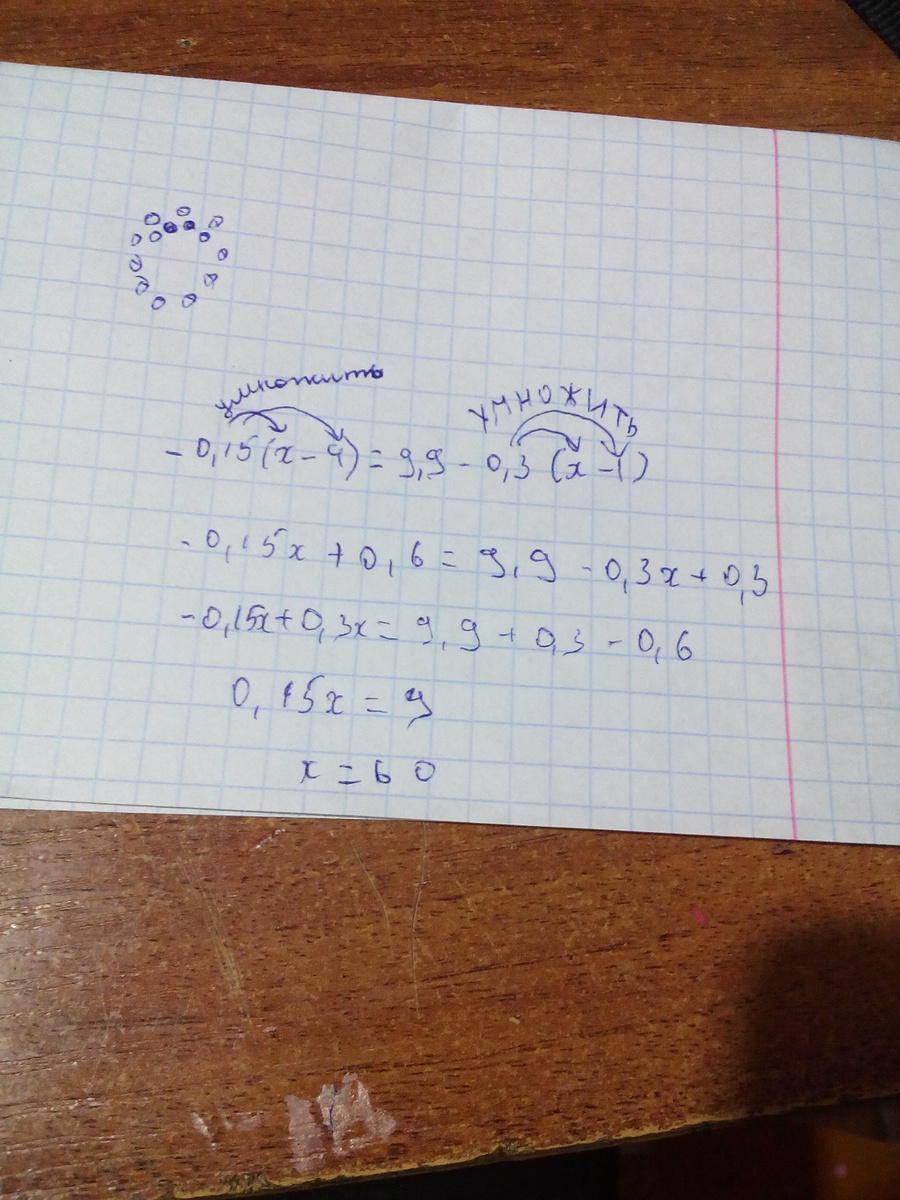 умножить УМНОЖИТЬ
-0,15(x-4)=9,9-0,3(x-1)
-0,15x+0,6=9,9-0,3x+0,3
-0,15x+0,3x=9,9+0,3-0,6
0,15x=9
x=60